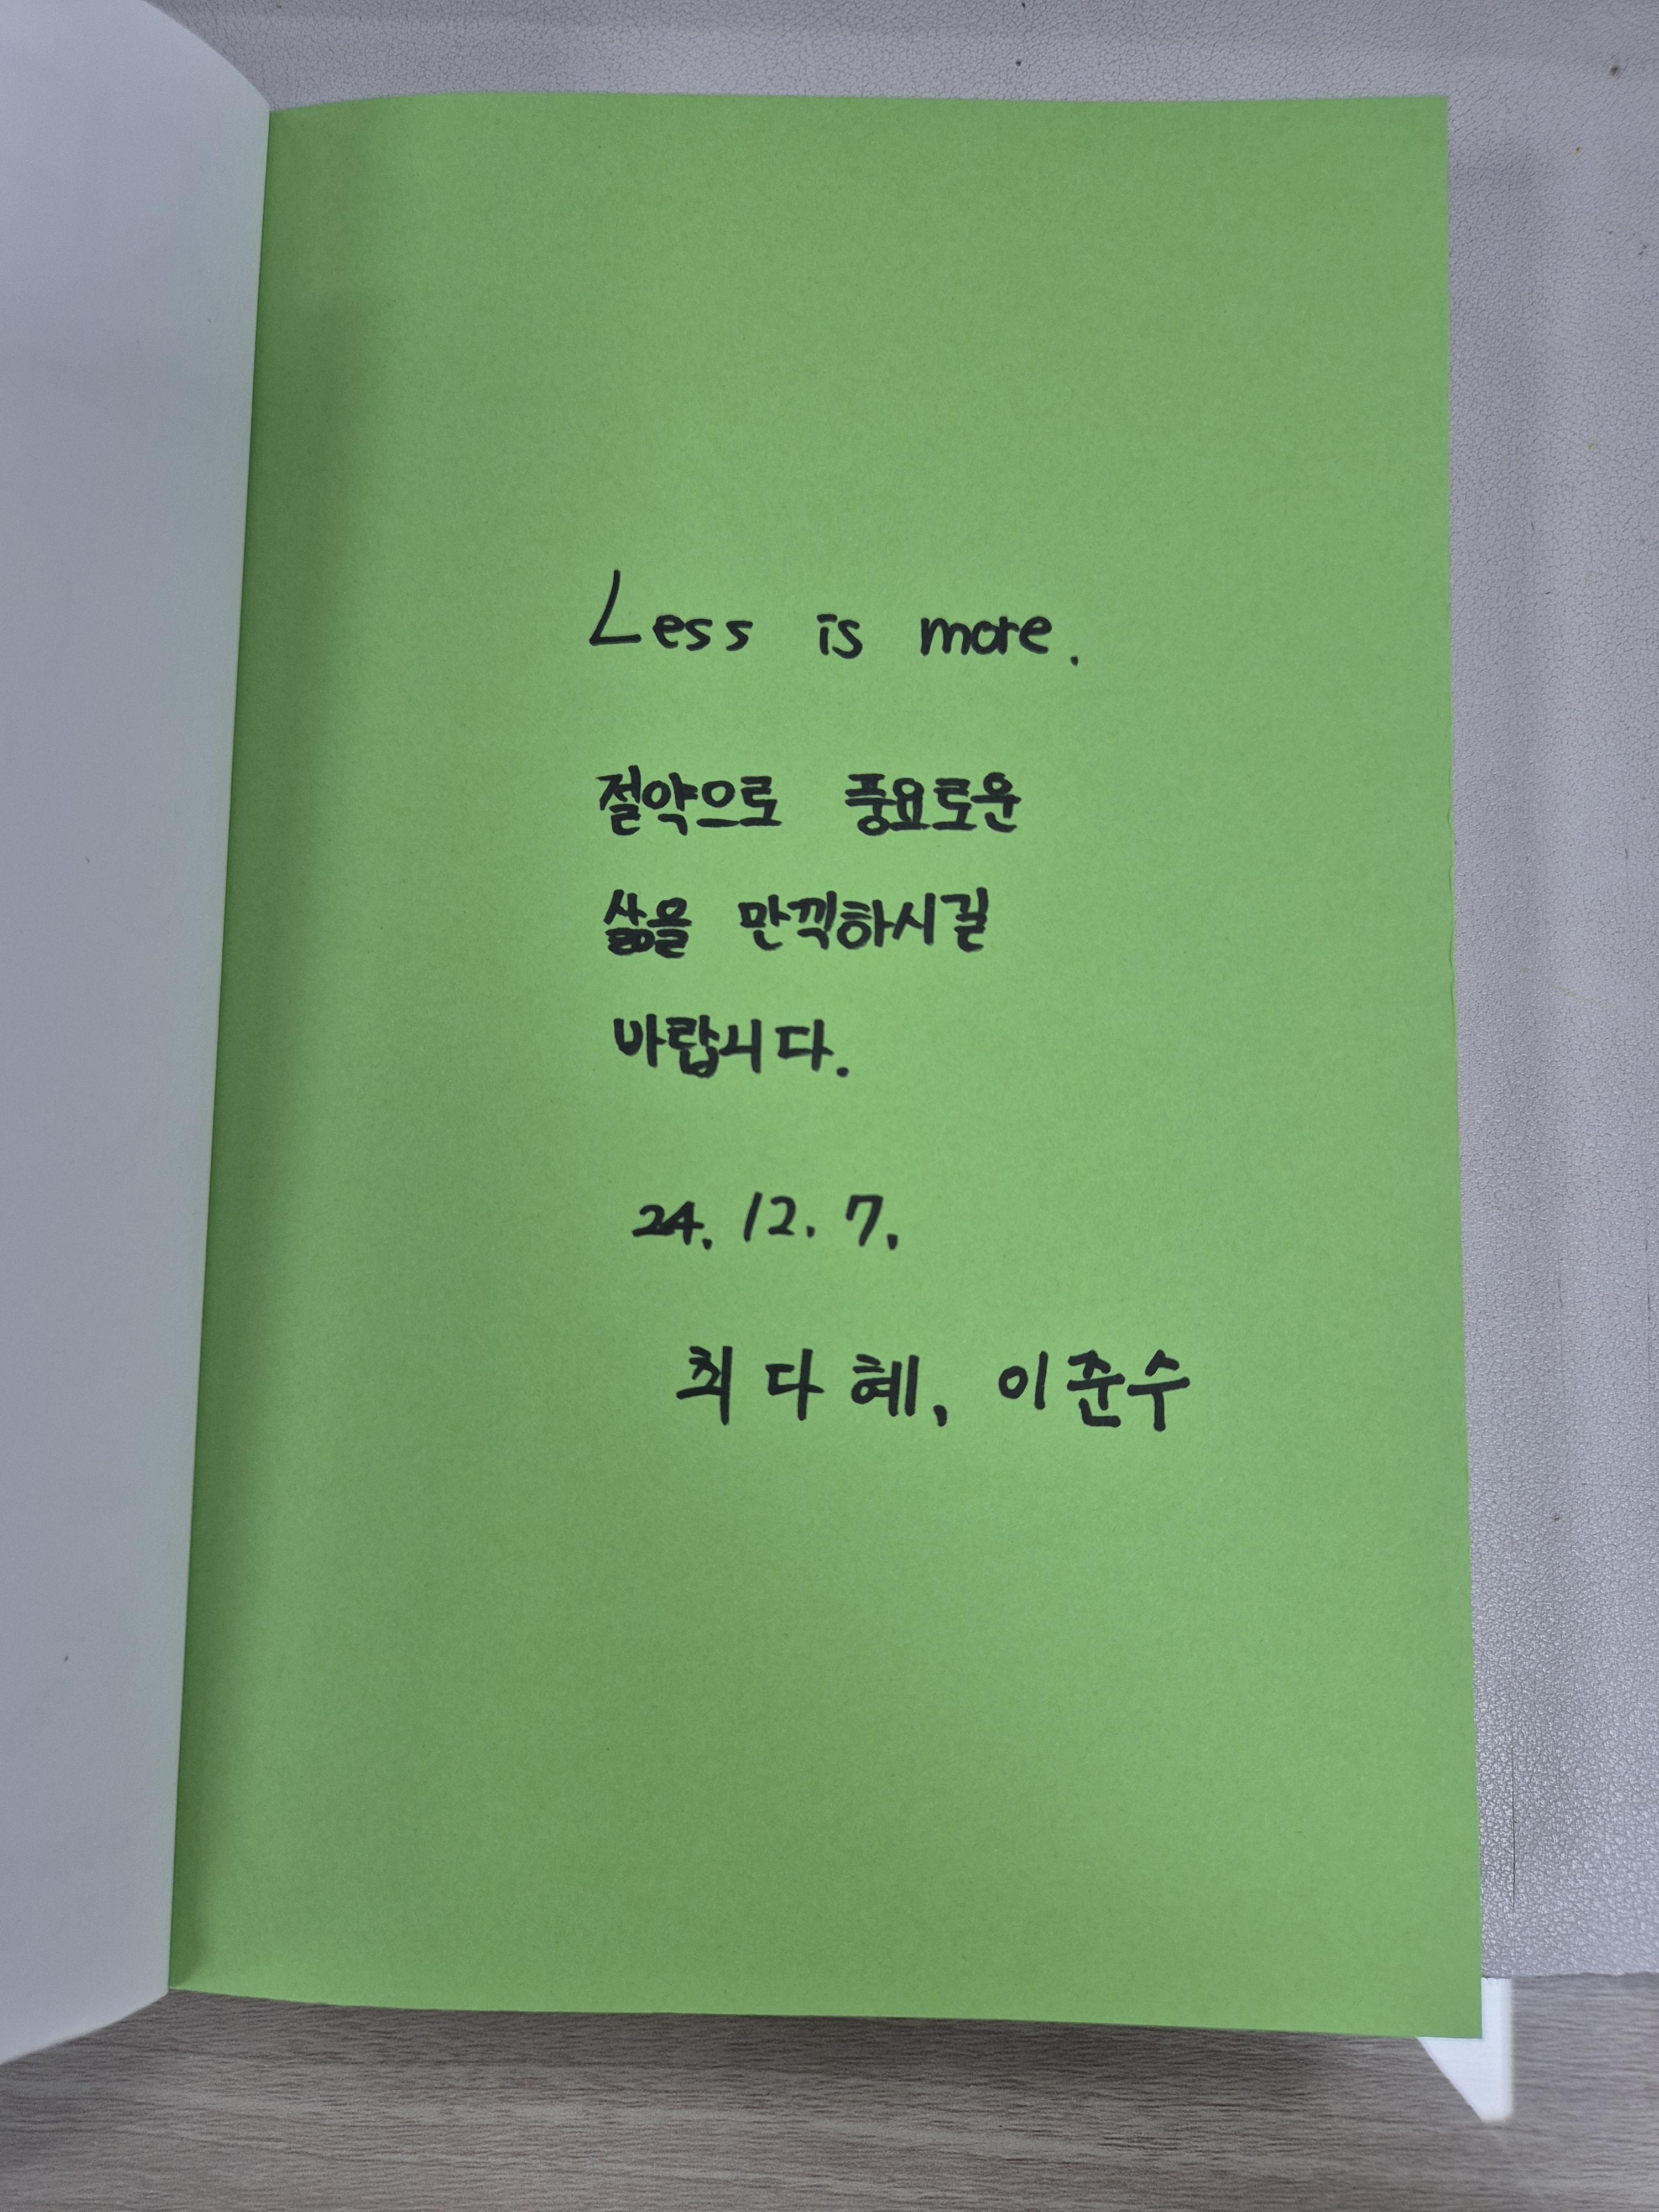 Less is more.
절약으로 풍요로운
삶을 만끽하시길
바랍니다.
24. 12. 7.
최다혜, 이준수